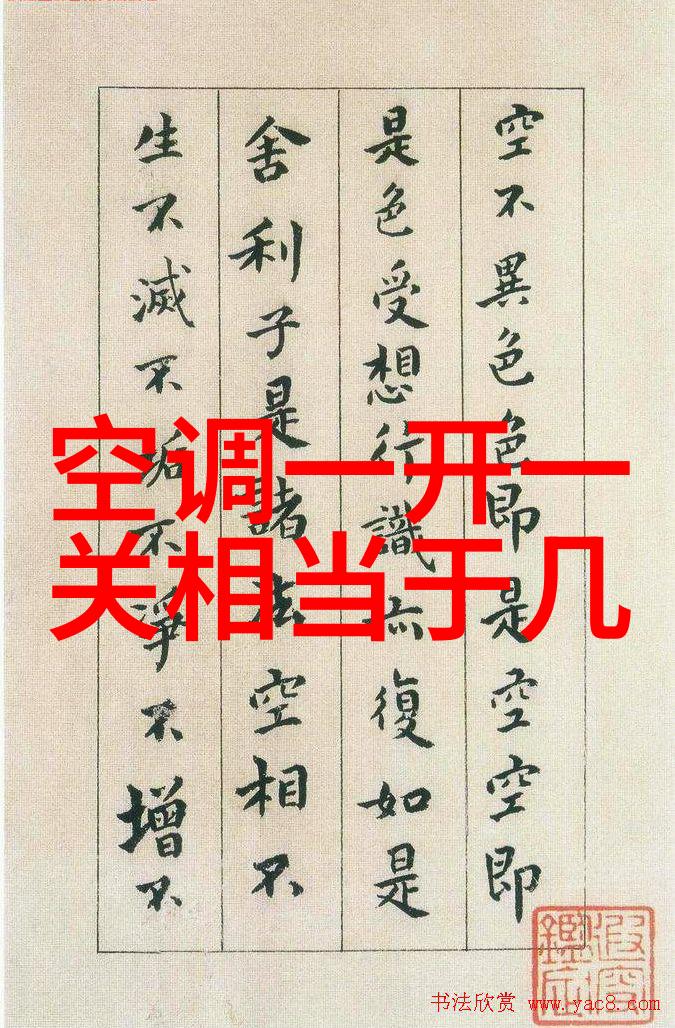 空不異色色即是空空即
是色受想行識亦復如是
舍利子是諸法空相不
生不滅不垢不淨不增不
空调一开一
关相当于几
书法欣赏 www.yac8.com